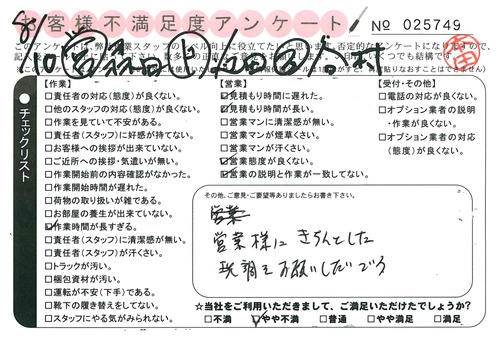 お客様不満足度アンケート
No 025749
8/10
このアンケートは、弊
チェックリスト
【作業】
□責任者の対応(態度)が良くない。
□他のスタッフの対応(態度)が良くない。
□作業を見ていて不安がある。
□責任者(スタッフ)に好感が持てない。
□お客様への挨拶が出来ていない。
□ご近所への挨拶・気遣いが無い。
□作業開始前の内容確認がなかった。
□作業開始時間が遅れた。
□荷物の取り扱いが雑である。
□お部屋の養生が出来ていない。
☑作業時間が長すぎる。
□責任者(スタッフ)に清潔感が無い。
□責任者(スタッフ)が汗くさい。
□トラックが汚い。
□梱包資材が汚い。
□運転が不安(下手)である。
□靴下の履き替えをしてない。
□スタッフにやる気がみられない。
【営業】
☑見積もり時間に遅れた。
☑見積もり時間が長い。
□営業マンに清潔感が無い。
□営業マンが煙草くさい。
□営業マンが汗くさい。
☑営業態度が良くない。
☑営業の説明と作業が一致してない。
【受付・その他】
□電話の対応が良くない。
□オプション業者の説明
・作業が良くない。
□オプション業者の対応
(態度)が良くない。
その他、ご意見・ご要望等ありましたらお書き下さい。
営業
営業様に きちんとした
現調をお願いしたいでう
☆当社をご利用いただきまして、ご満足いただけたでしょうか?
□不満 ☑やや不満 □普通 □やや満足 □満足